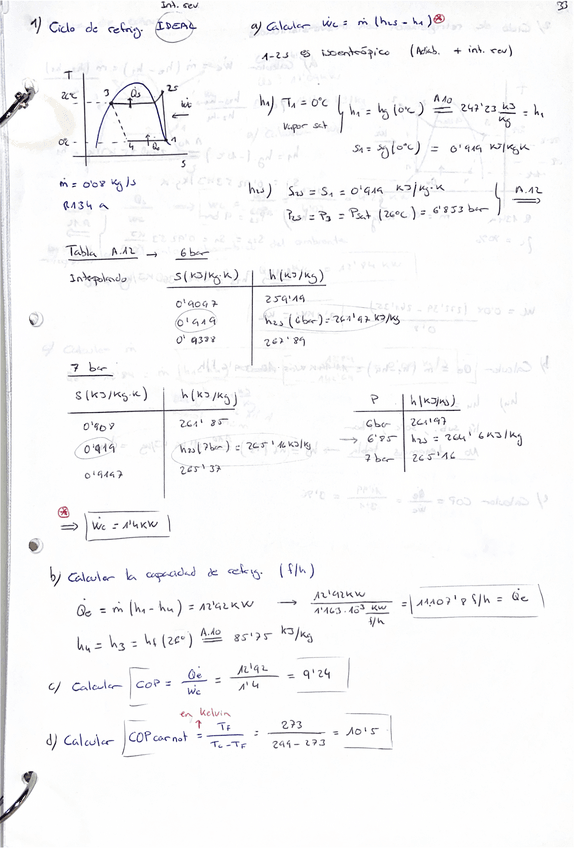 33
Int. rev
1) Ciclo de refrig. IDEAL
a) Calcular Ẇc = ṁ (h2s - h1) *
1-2s es isoentrópico (Adiab. + int. rev)
T
26º
3
2s
Q̇s
Ẇc
0º
4
Q̇e
1
S
ṁ = 0'08 kg/s
R134 a
h1) T1 = 0ºC
Vapor sat
h1 = hg (0ºC) A.10 = 247'23 KJ/Kg = h1
s1 = sg (0ºC) = 0'919 KJ/Kg·K
h2s) S2s = S1 = 0'919 KJ/Kg·K
P2s = P3 = Psat (26ºC) = 6'853 bar
A.12 ⟹
Tabla A.12 → 6 bar
Interpolando
S (KJ/Kg·K) h (KJ/Kg)
0'9097 259'19
0'919 h2s (6bar) = 261'97 KJ/Kg
0'9388 267'89
7 bar
S (KJ/Kg·K) h (KJ/Kg)
0'908 261'85
0'919 h2s (7bar) = 265'16 KJ/Kg
0'9197 265'37
P h (KJ/KG)
6bar 261'97
→ 6'85 h2s = 264'6 KJ/Kg
7bar 265'16
*
⟹ Ẇc = 1'4 KW
b) Calcular la capacidad de refrig. (f/h)
Q̇e = ṁ (h1 - h4) = 12'92 KW → 12'92 KW / 1'163·10⁻³ KW/f/h = 11107'8 f/h = Q̇e
h4 = h3 = hf (26º) A.10 = 85'75 KJ/Kg
c) Calcular COP = Q̇e / Ẇc = 12'92 / 1'4 = 9'24
en Kelvin
d) Calcular COP carnot = TF / (TC - TF) = 273 / (299 - 273) = 10'5